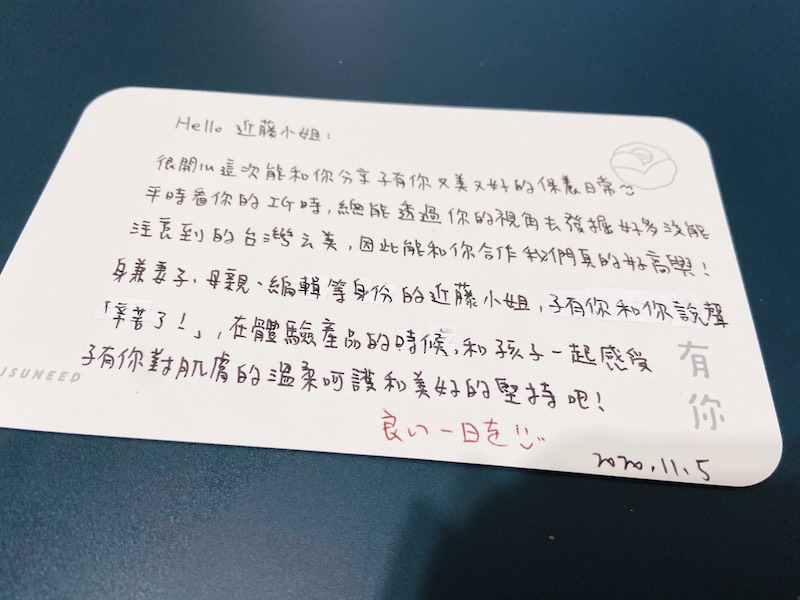 Hello 近藤小姐：
很開心這次能和你分享子有你又美又好的保養日常～
平時看你的IG時，總能透過你的視角去發掘好多沒能
注意到的台灣之美，因此能和你合作我們真的好高興！
身兼妻子、母親、編輯等身份的近藤小姐，子有你和你說聲
「辛苦了！」，在體驗產品的時候，和孩子一起感受
子有你對肌膚的溫柔呵護和美好的堅持吧！
良い一日を
2020.11.5
有你
JSUNEED